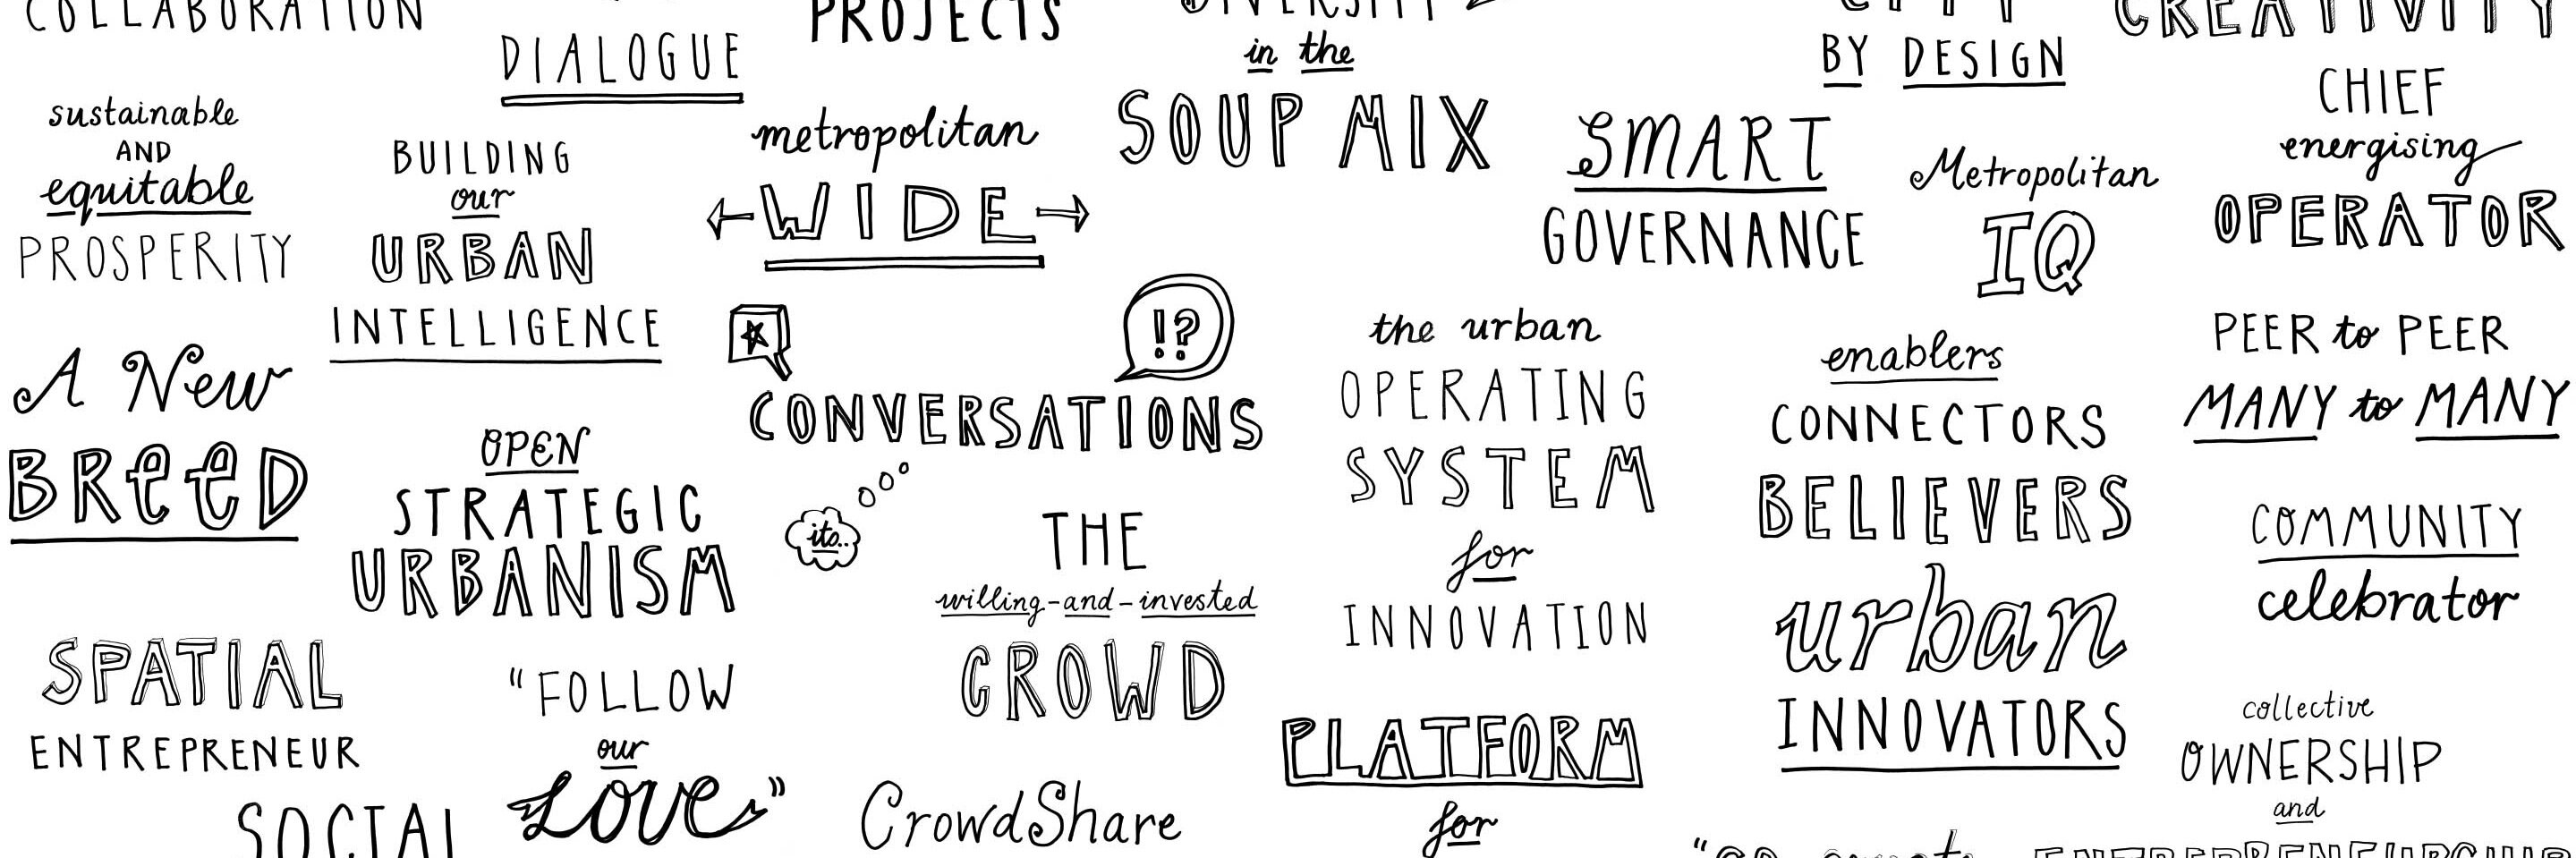 COLLABORATION
DIALOGUE
sustainable
AND
equitable
PROSPERITY
BUILDING
our
URBAN
INTELLIGENCE
A New
BREED
OPEN
STRATEGIC
URBANISM
SPATIAL
ENTREPRENEUR
SOCIAL
"FOLLOW
our
LOVE"
PROJECTS
metropolitan
WIDE
!?
CONVERSATIONS
its..
THE
willing-and-invested
CROWD
CrowdShare
DIVERSITY
in the
SOUP MIX
the urban
OPERATING
SYSTEM
for
INNOVATION
PLATFORM
for
SMART
GOVERNANCE
CITY
BY DESIGN
Metropolitan
IQ
enablers
CONNECTORS
BELIEVERS
urban
INNOVATORS
CREATIVITY
CHIEF
energising
OPERATOR
PEER to PEER
MANY to MANY
COMMUNITY
celebrator
collective
OWNERSHIP
and
ENTREPRENEURSHIP